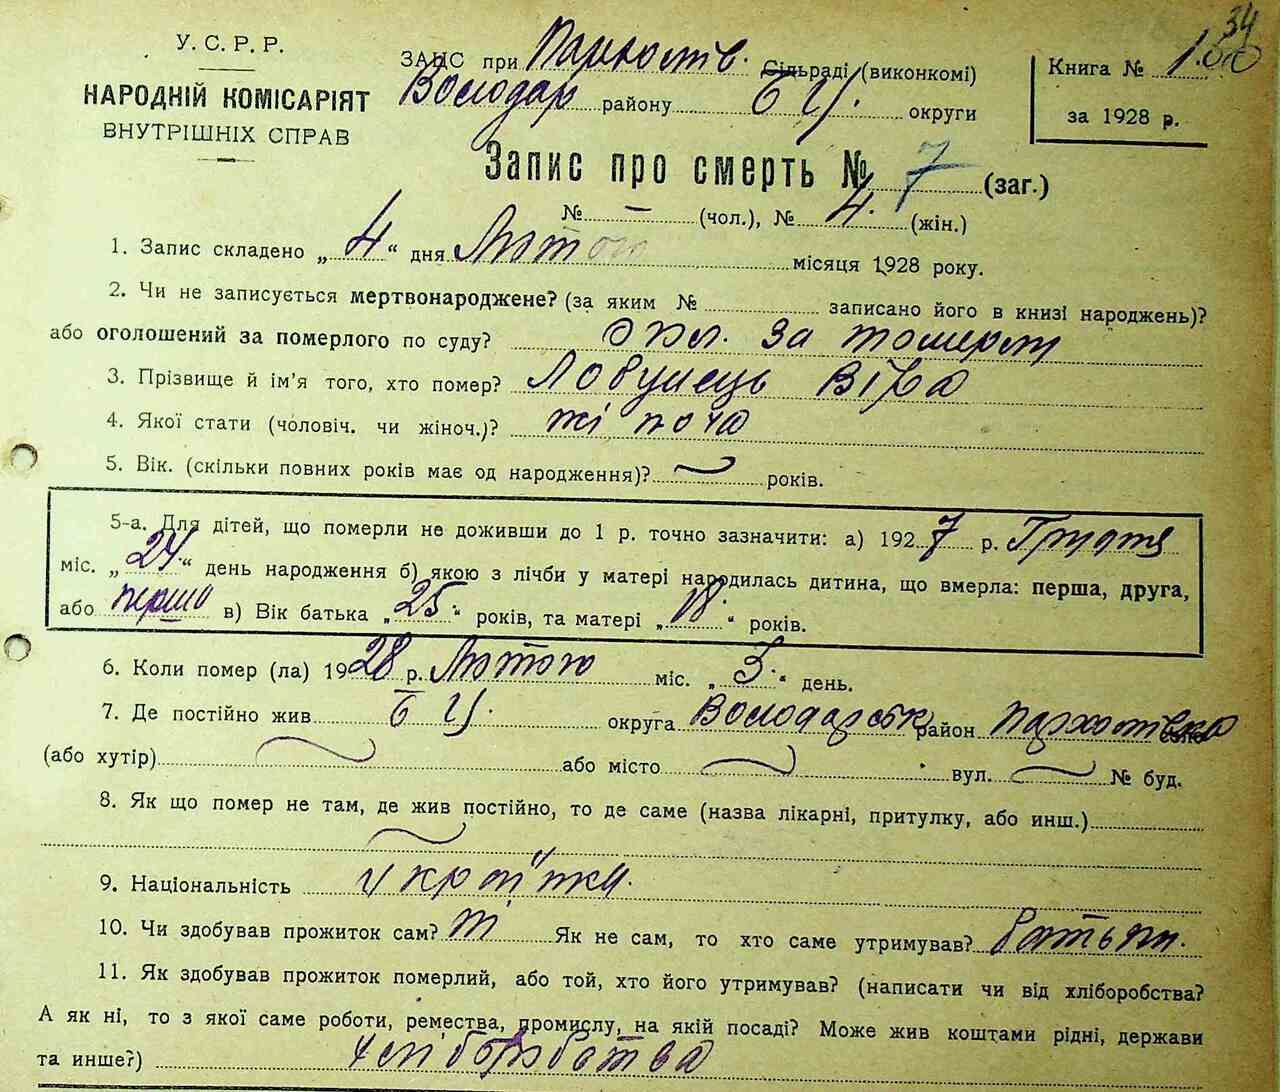 34
У. С. Р. Р.
НАРОДНІЙ КОМІСАРІЯТ
ВНУТРІШНІХ СПРАВ
ЗАГС при Пархомів. Сільраді (виконкомі)
Володар району Б Ц. округи
Книга № 1.
за 1928 р.
Запис про смерть № 7 (заг.)
№ – (чол.), № 4. (жін.)
1. Запис складено „4“ дня Лютого місяця 1928 року.
2. Чи не записується мертвонароджене? (за яким № записано його в книзі народжень)?
або оголошений за померлого по суду? за
3. Прізвище й ім’я того, хто помер? Віра
4. Якої стати (чоловіч. чи жіноч.)? жіноча
5. Вік. (скільки повних років має од народження)? років.
5-а. Для дітей, що померли не доживши до 1 р. точно зазначити: а) 1927 р. Грудня
міс. „24“ день народження б) якою з лічби у матері народилась дитина, що вмерла: перша, друга,
або перша в) Вік батька „25“ років, та матері „18“ років.
6. Коли помер (ла) 1928 р. Лютого міс. „3“ день.
7. Де постійно жив Б Ц. округа Володарськ район Пархомівка село
(або хутір) або місто вул. № буд.
8. Як що помер не там, де жив постійно, то де саме (назва лікарні, притулку, або инш.)
9. Національність Українка.
10. Чи здобував прожиток сам? Ні Як не сам, то хто саме утримував? батьки.
11. Як здобував прожиток померлий, або той, хто його утримував? (написати чи від хліборобства?
А як ні, то з якої саме роботи, ремества, промислу, на якій посаді? Може жив коштами рідні, держави
та инше?) хліборобства